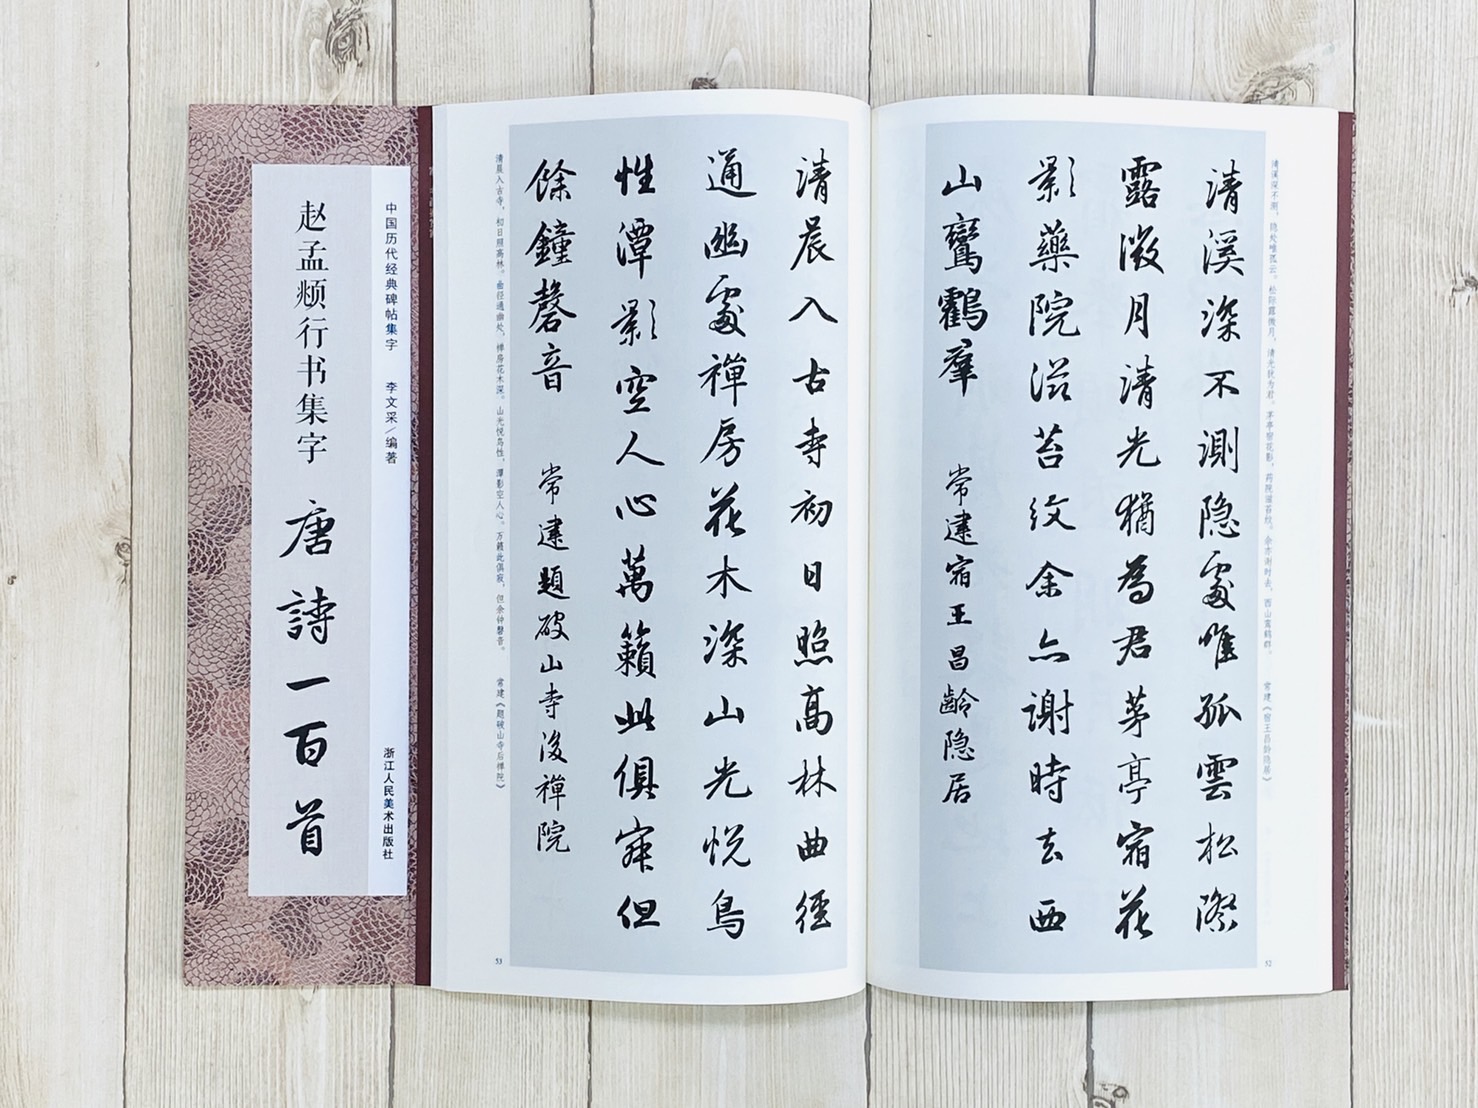 中国历代经典碑帖集字 李文采/编著
浙江人民美术出版社
赵孟頫行书集字 唐詩一百首
清溪深不测，隐处唯孤云。松际露微月，清光犹为君。茅亭宿花影，药院滋苔纹。余亦谢时去，西山鸾鹤群。 常建《宿王昌龄隐居》
清溪深不測隐處唯孤雲松際
露微月清光猶為君茅亭宿花
影藥院滋苔紋余亦謝時去西
山鸞鶴羣 常建宿王昌齡隐居
52
清晨入古寺初日照高林曲徑
通幽處禪房花木深山光悦鳥
性潭影空人心萬籟此俱寂但
餘鐘磬音 常建題破山寺後禪院
清晨入古寺，初日照高林。曲径通幽处，禅房花木深。山光悦鸟性，潭影空人心。万籁此俱寂，但余钟磬音。 常建《题破山寺后禅院》
53